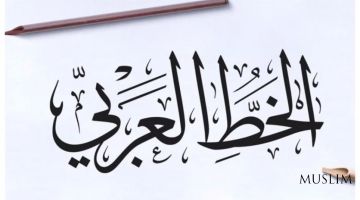 الخطُّ العربيّ
MUSLIM